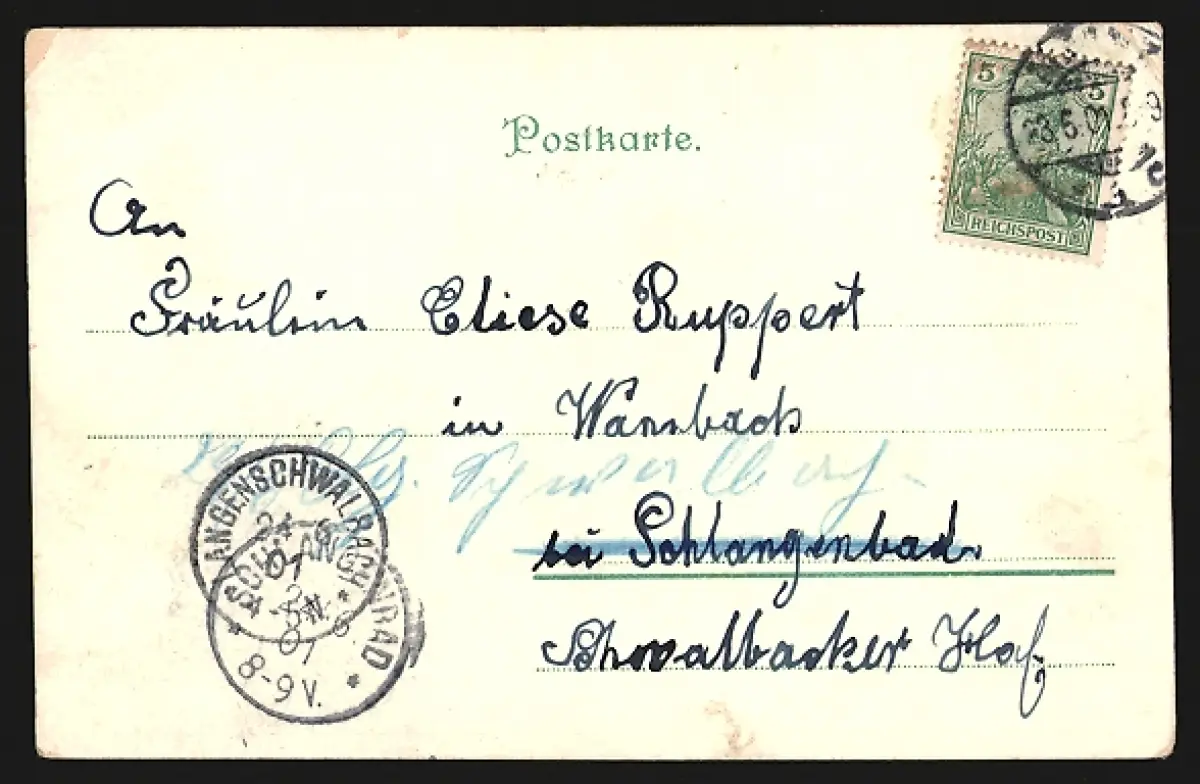 Postkarte.
5
REICHSPOST
23.6.01
An
Fräulein Eliese Ruppert
in Wambach
bei Schlangenbad
Schwalbacher Hof
LANGENSCHWALBACH
24-6
01
SCHLANGENBAD
01
8-9 V.